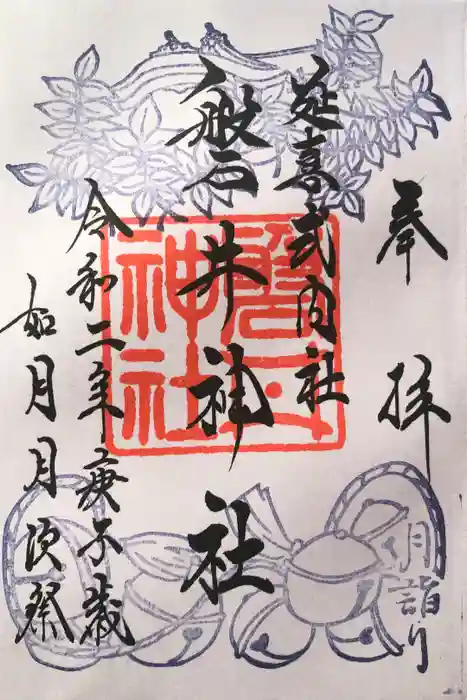 奉拝
月詣り
延喜式内社
磐井神社
令和二年庚子歳
如月月次祭
磐井神社